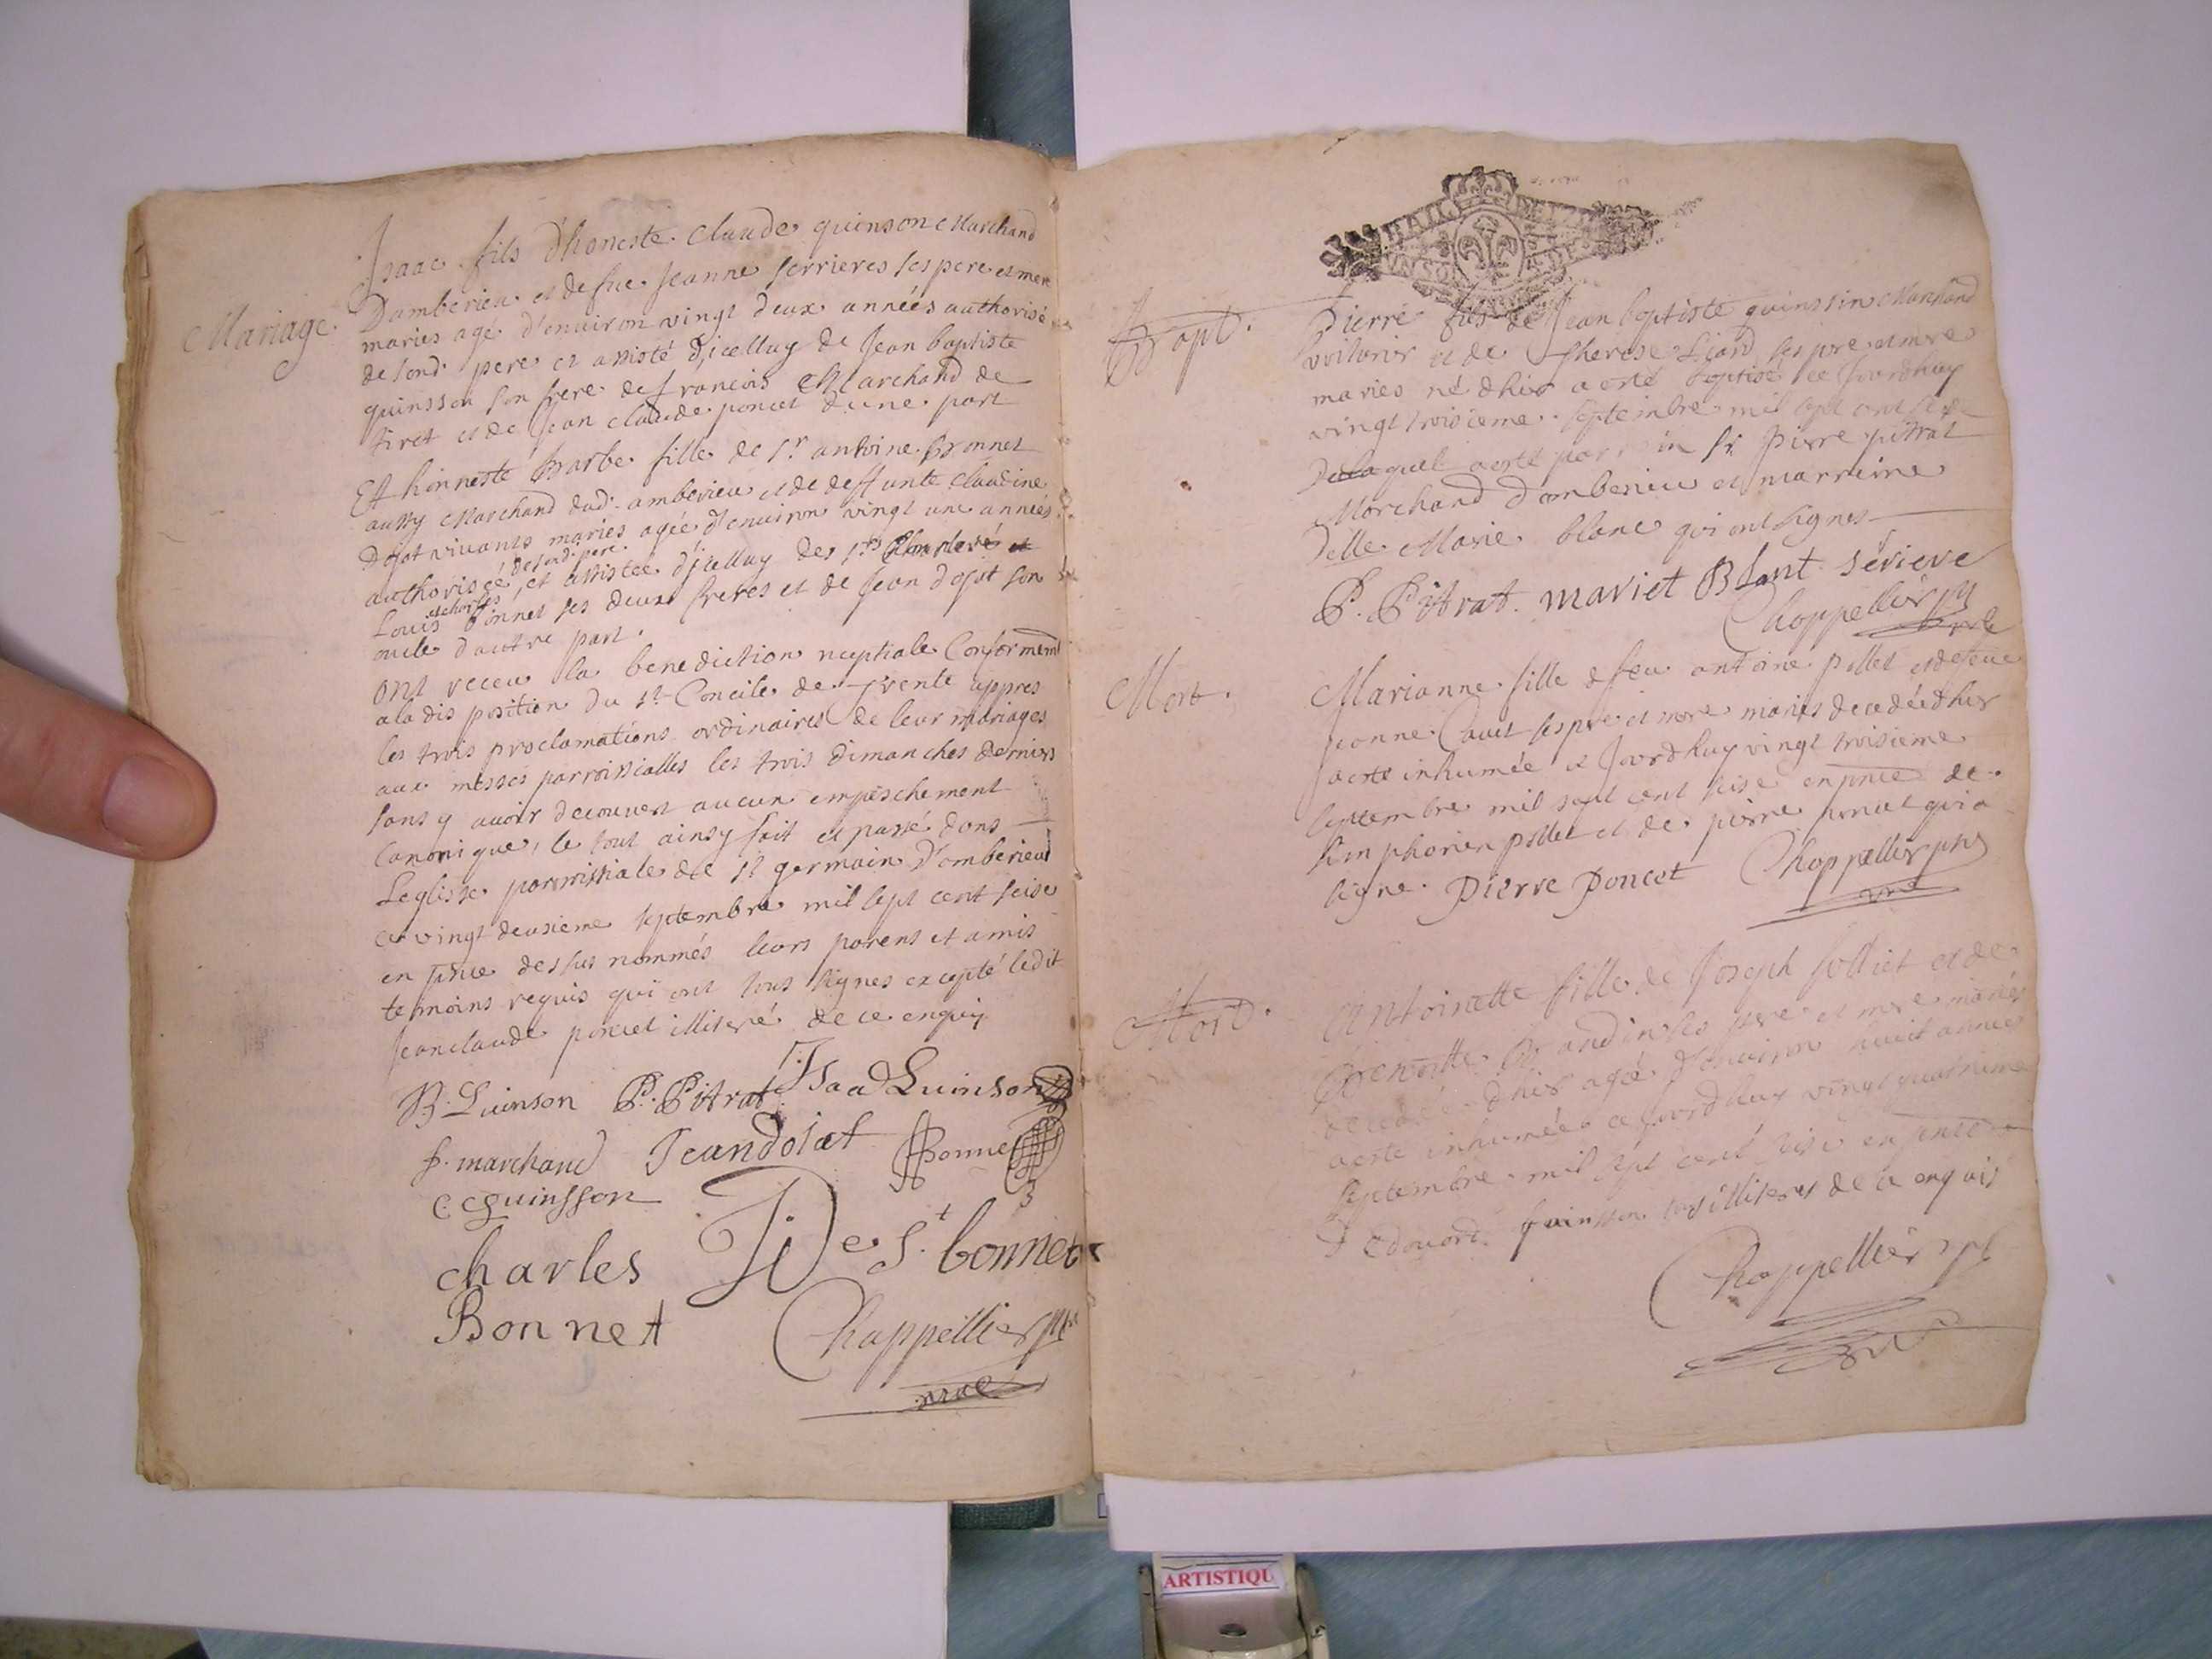 Mariage.
Isaac fils d'honeste Claude quinson Marchand
Damberieu et de fue Jeanne serrieres ses pere et mere
maries agé d'environ vingt deux années authorisé
de sond. pere et assisté d'jcelluy de Jean baptiste
quinsson son frere de francois Marchand de
tiret et de Jean claude poncet d'une part
Et honneste Barbe fille de Sr. antoine Bonnet
aussy Marchand dud. amberieu et de deffunte claudine
Dojat vivants mariés agée d'environ vingt une années
authorisée de sond. pere et assistée d'jcelluy des Srs
Louis et charles Bonnet ses deux freres et de Jean dojat son
oncle d'autre part.
ont receu la benediction nuptiale Conformemt
a la disposition du St. Concile de Trente appres
les trois proclamations ordinaires de leur mariages
aux messes parroissialles les trois dimanches derniers
sans y avoir decouvert aucun empeschement
Canonique, le tout ainsy fait et passé dans
Leglisse parroissiale de St germain D'amberieu
ce vingt deusieme septembre mil sept cent seise
en pnce des sus nommés leurs parens et amis
temoins requis qui ont tous signes excepté ledit
Jeanclaude poncet illiteré de ce enquis
B. Quinson P. Pitrat Isaac Quinson
f. marchand Jean dojat Bonnet
C quinsson
charles De St. bonnet
Bonnet Chappellier ptre
Bapt.
Pierre fils de Jean baptiste quinssin Marchand
voiturier et de Therese Liard ses pere et mere
maries né d'hier a esté baptisé ce Jourdhuy
vingt troisieme septembre mil sept cent seize
Duquel a esté parrin Sr. Pierre pitrat
Marchand d'amberieu et marreine
Delle Marie blanc qui ont signes
P. Pitrat. mariet Blant serieve
Chappellier ptre
Mort.
Marianne fille de feu antoine pillet et de feue
Jeanne Cavet ses pere et mere mariés decedée d'hier
a esté inhumée ce Jourdhuy vingt troisieme
septembre mil sept cent seise en pnce de
simphorien pillet et de pierre poncet qui a
signe. Pierre Poncet Chappellier ptre
Mort.
Antoinette fille de Joseph solliet et de
Benoitte Brandin ses pere et mere mariés
decedée d'hier agée d'environ huict années
a esté inhumée ce Jourdhuy vingt quatrieme
septembre mil sept cent seise en pnce
d Edouard quinsson tous illiteres de ce enquis
Chappellier ptre
ARTISTIQU